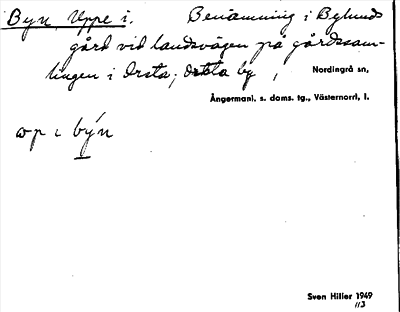 Byn, Uppe i. Benämning i Bylunds
gård vid landsvägen på gårdssam-
lingen i Orsta; Orsta by, Nordingrå sn,
Ångermanl. s. doms. tg., Västernorrl, l.
i býn
Sven Hiller 1949
113